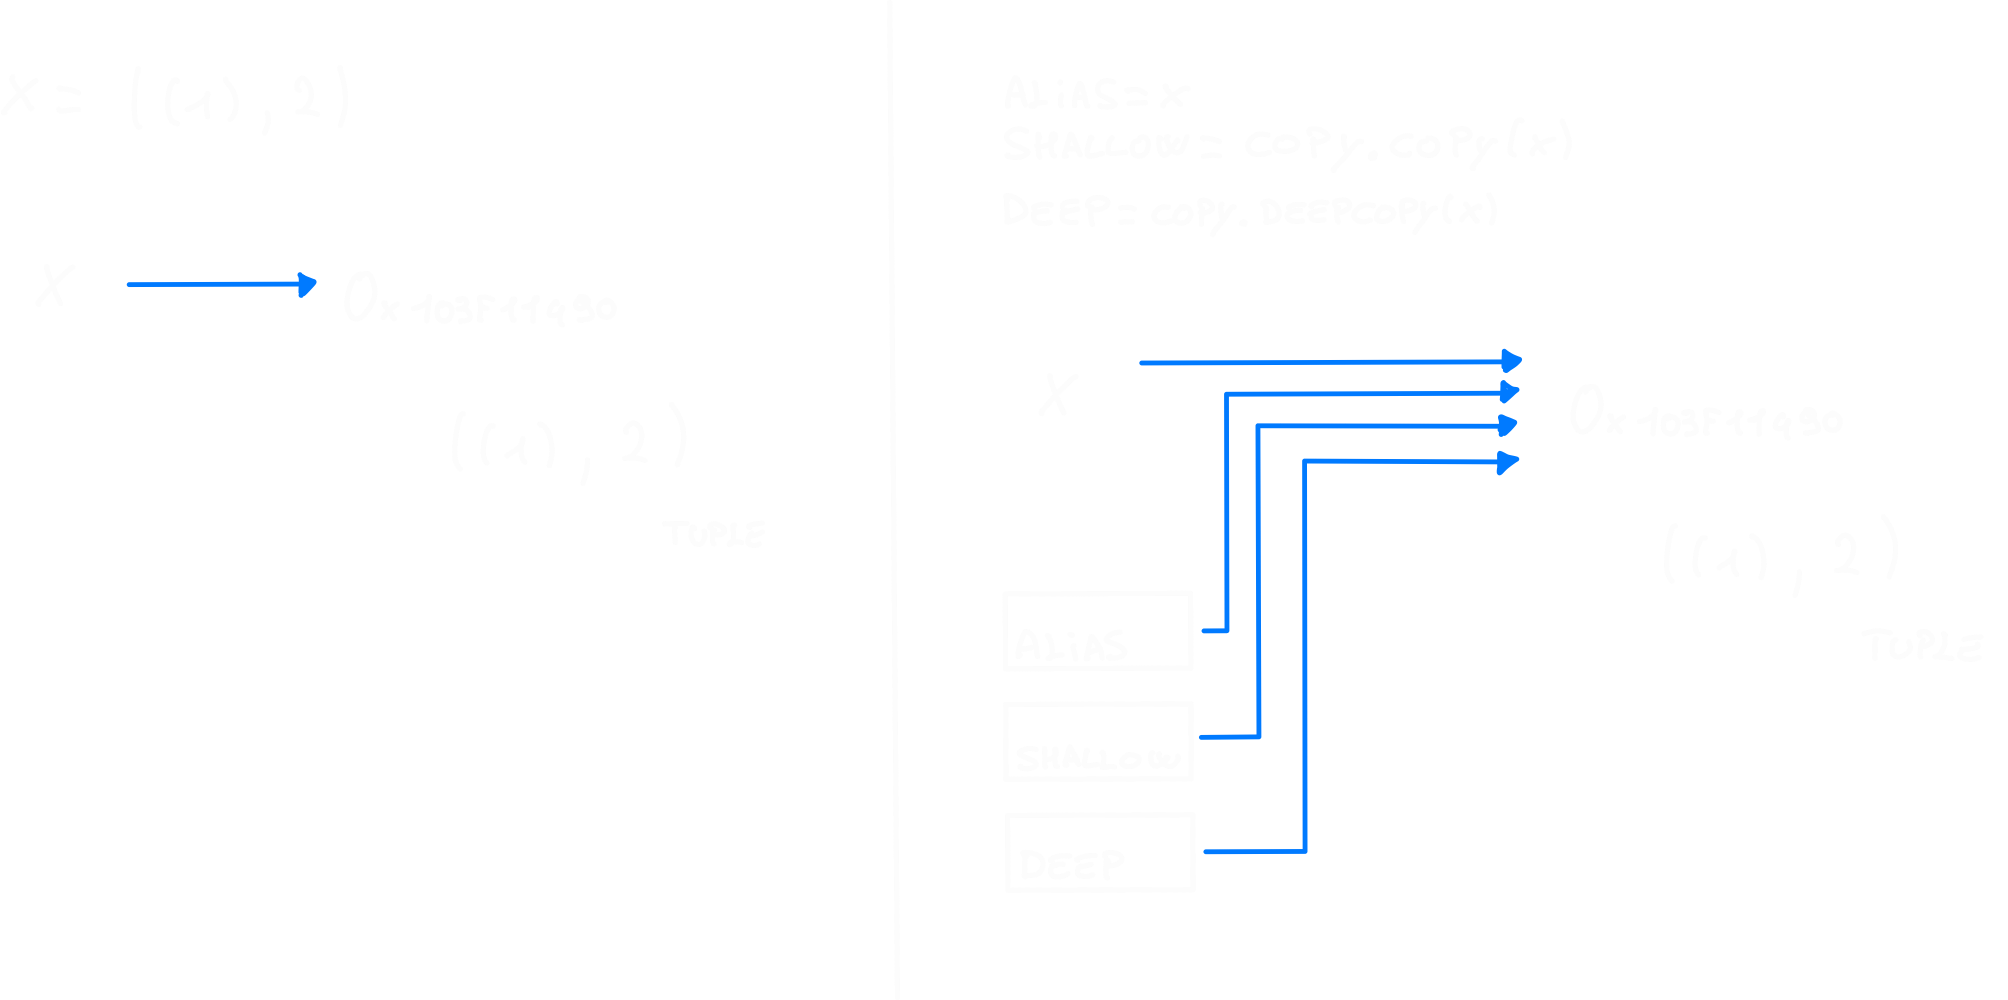 X = ((1), 2)
X
0x103F11930
((1), 2)
TUPLE
ALiAS = x
SHALLOW = copy.copy(x)
DEEP = copy.DEEPCOPY(x)
X
0x103F11930
ALiAS
((1), 2)
TUPLE
SHALLOW
DEEP